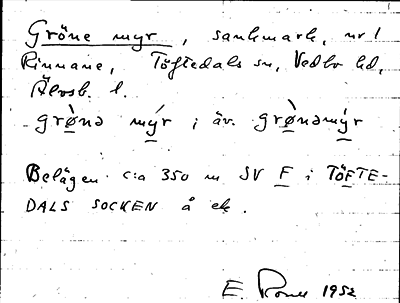 Gröne myr, sankmark, nr 1
Rinnane, Töftedals sn, Vedbo hd,
Älvsb. l.
grø̀nə mýr ; äv. grø̀nəmýr
Belägen c:a 350 m SV F i TÖFTE-
DALS SOCKEN å ek.
E. 1952